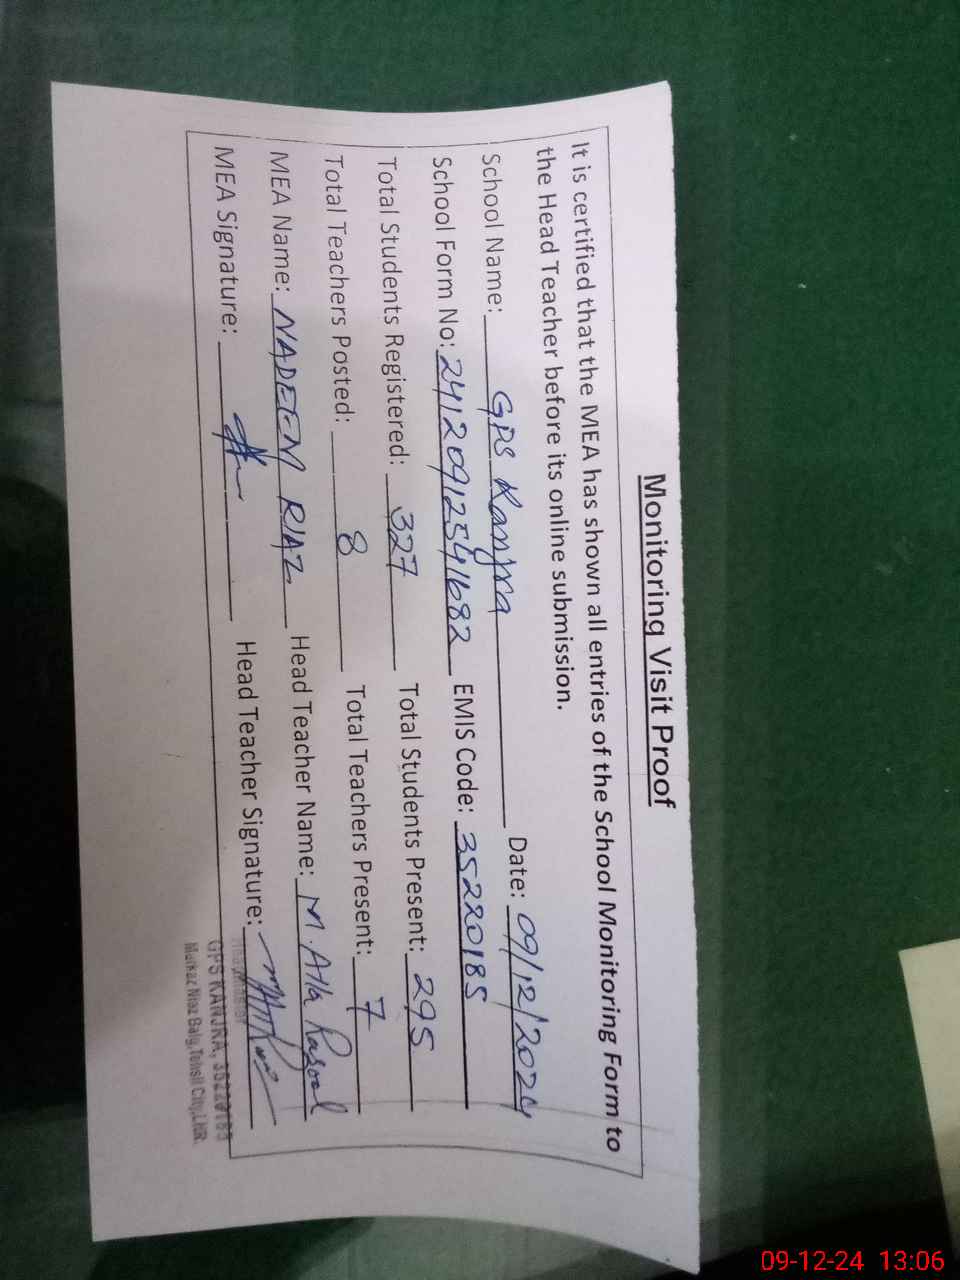 Monitoring Visit Proof
It is certified that the MEA has shown all entries of the School Monitoring Form to
the Head Teacher before its online submission.
School Name: GPS Kanjra Date: 09/12/2024
School Form No: 24120912541682 EMIS Code: 35220185
Total Students Registered: 327 Total Students Present: 295
Total Teachers Posted: 8 Total Teachers Present: 7
MEA Name: NADEEM RIAZ Head Teacher Name: M. Atta Rasool
MEA Signature: Head Teacher Signature:
GPS KANJRA, 35220185
Markaz Niaz Baig, Tehsil City, LHR.
09-12-24 13:06